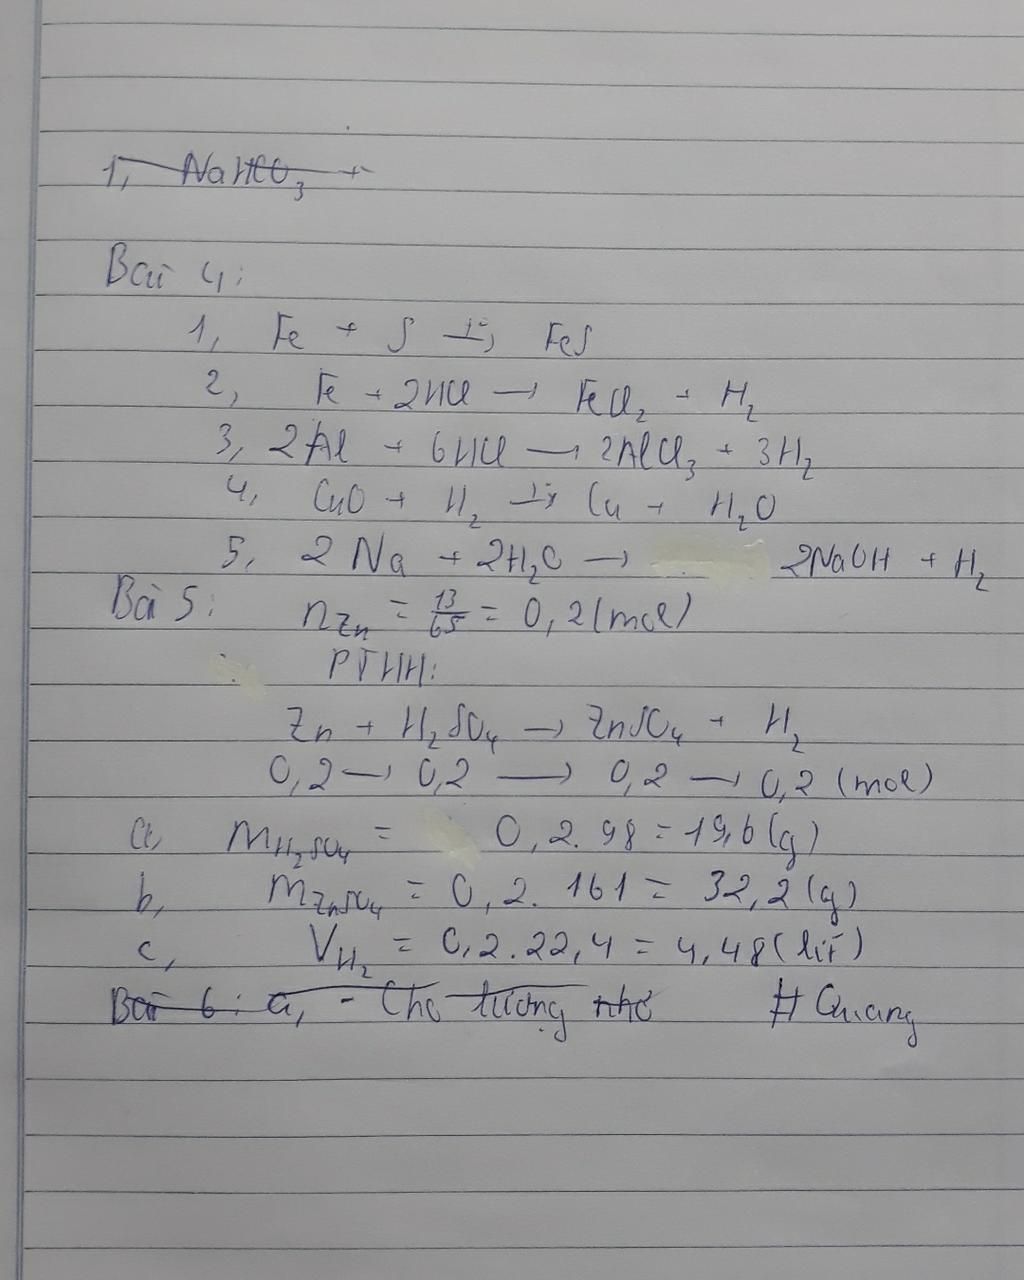 1, NaHCO₃ +
Bài 4:
1, Fe + S —t°→ FeS
2, Fe + 2HCl → FeCl₂ + H₂
3, 2Al + 6HCl → 2AlCl₃ + 3H₂
4, CuO + H₂ —t°→ Cu + H₂O
5, 2Na + 2H₂O → 2NaOH + H₂
Bài 5: nZn = 13/65 = 0,2 (mol)
PTHH:
Zn + H₂SO₄ → ZnSO₄ + H₂
0,2 → 0,2 → 0,2 → 0,2 (mol)
a, mH₂SO₄ = 0,2.98 = 19,6 (g)
b, mZnSO₄ = 0,2.161 = 32,2 (g)
c, VH₂ = 0,2.22,4 = 4,48 (lít)
Bài 6: a, - Cho lượng nhỏ # Quang